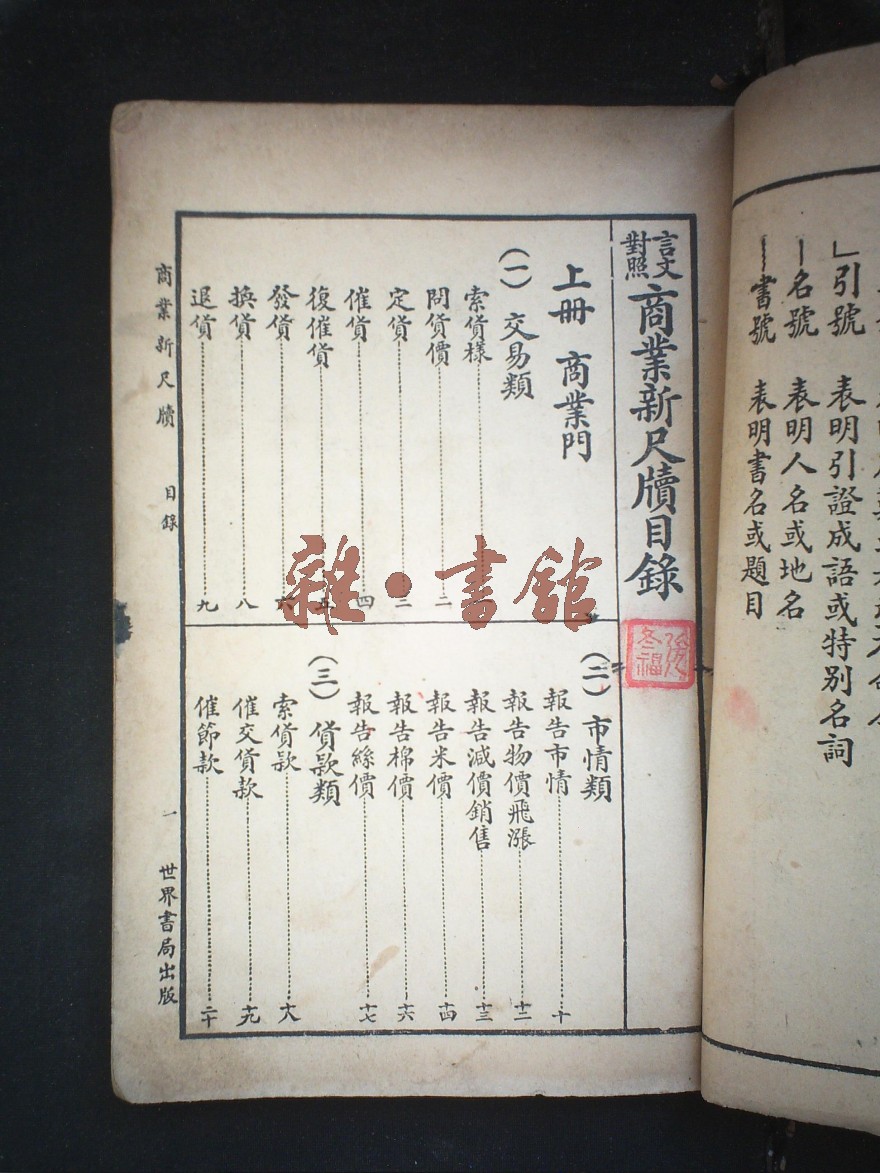 」引號 表明引證成語或特別名詞
—名號 表明人名或地名
﹏書號 表明書名或題目
言文對照 商業新尺牘目錄
上冊 商業門
(一) 交易類
索貨樣
問貨價……二
定貨……三
催貨……四
復催貨……五
發貨……六
換貨……八
退貨……九
(二) 市情類
報告市情……十
報告物價飛漲……十二
報告減價銷售……十三
報告米價……十四
報告棉價……十六
報告絲價……十七
(三) 貨款類
索貨款……十八
催交貨款……十九
催節款……二十
商業新尺牘 目錄 一 世界書局出版
雜·書館